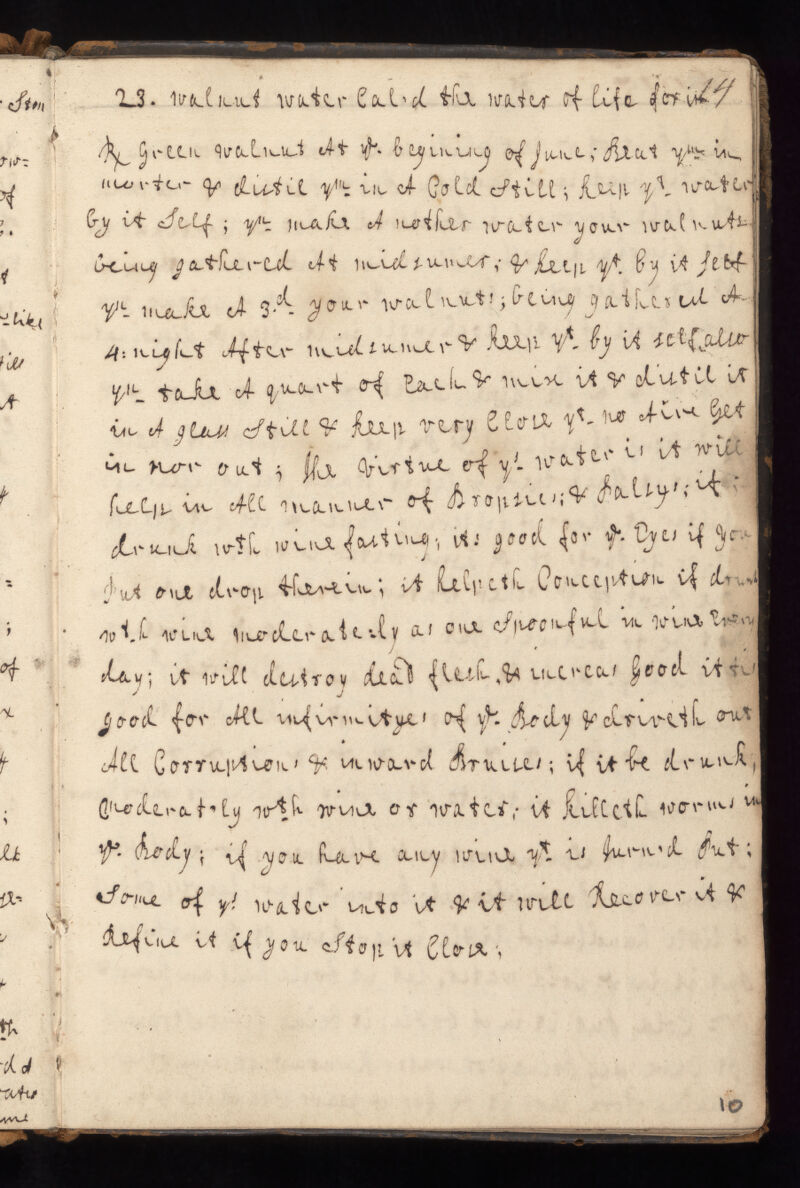 14
23. walnut water Cal'd the water of life for it
℞ Green walnut At ye. begining of June; Beat ym in
morter & distil ym in A Cold Still; keep yt water
by it Self; yn make A nother water your walnuts
being gathered At midsumer; & keep yt. by it Self
yn make A 3.d your walnuts; being gathered A
4:night After midsumer & keep yt. by it self also
yn take A quart of Each & mix it & distil it
in A glass Still & keep very Close yt no Aire Get
in nor out; the Virtue of ys water is it will
help in All manner of Dropsies; & Palsys; if
drunk wth wine fasting; its good for ye. Eyes if you
Put one drop therein; it helpeth Conception if drunk
wth wine moderately as one Spoonful in wine Every
day; it will destroy dead flesh, & increas Good it tis
good for All infirmityes of ye. Body & driveth out
All Corruptions & inward Bruises; if it be drunk,
Moderatly wth wine or water; it killeth worms in
ye. Body; if you have any wine yt is turn'd Put;
Some of ys water into it & it will Recover it &
Refine it if you Stop it Close;
10
Ston
ow=
of
like
it
=
;
of
th
me